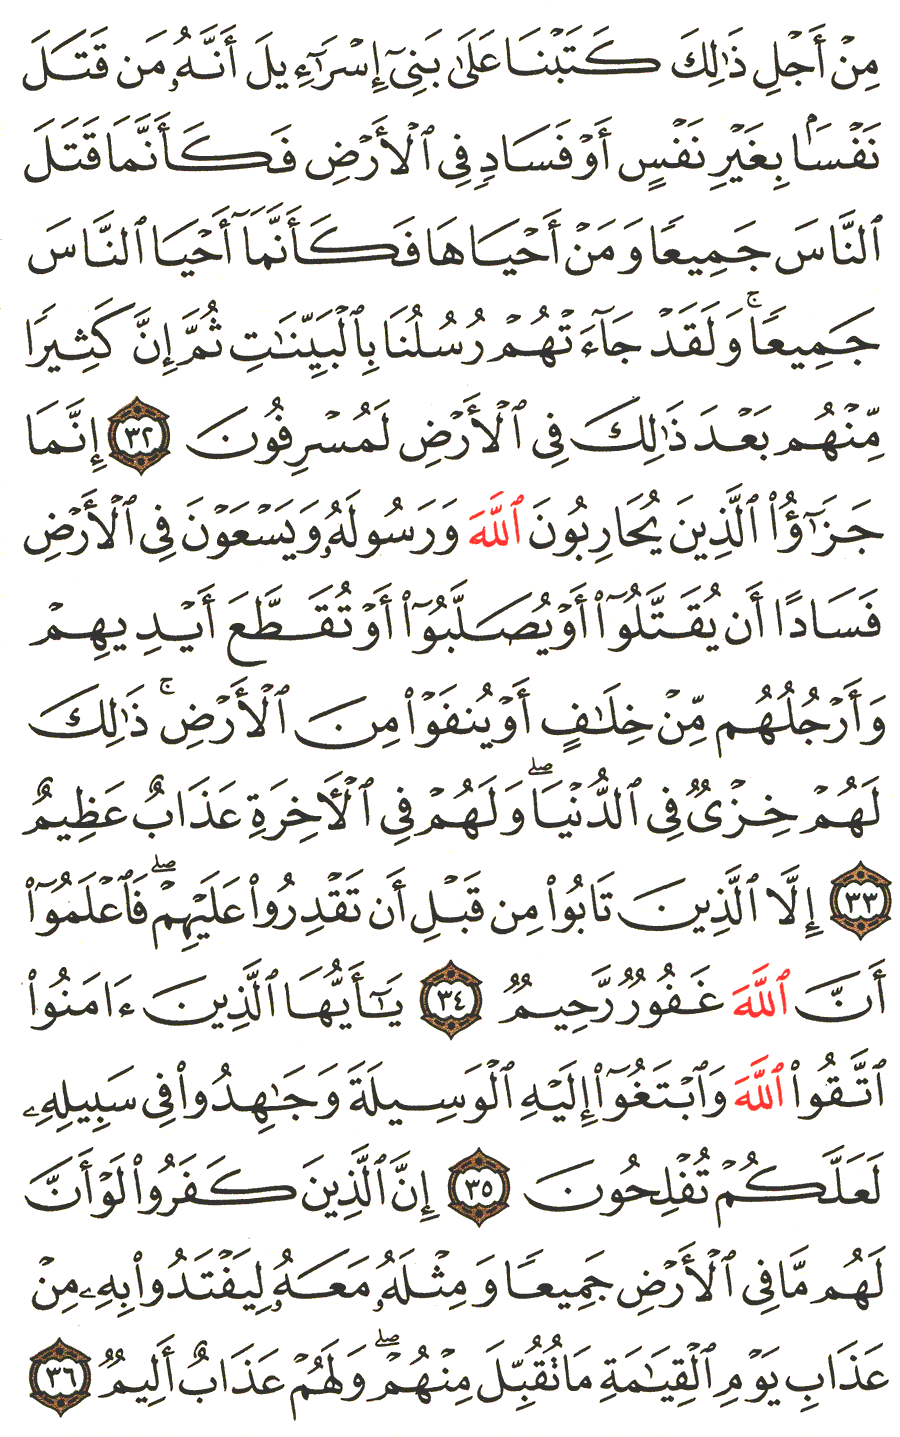 مِنْ أَجْلِ ذَٰلِكَ كَتَبْنَا عَلَىٰ بَنِىٓ إِسْرَٰٓءِيلَ أَنَّهُۥ مَن قَتَلَ
نَفْسًۢا بِغَيْرِ نَفْسٍ أَوْ فَسَادٍ فِى ٱلْأَرْضِ فَكَأَنَّمَا قَتَلَ
ٱلنَّاسَ جَمِيعًا وَمَنْ أَحْيَاهَا فَكَأَنَّمَآ أَحْيَا ٱلنَّاسَ
جَمِيعًا ۚ وَلَقَدْ جَآءَتْهُمْ رُسُلُنَا بِٱلْبَيِّنَٰتِ ثُمَّ إِنَّ كَثِيرًا
مِّنْهُم بَعْدَ ذَٰلِكَ فِى ٱلْأَرْضِ لَمُسْرِفُونَ ٣٢ إِنَّمَا
جَزَٰٓؤُا۟ ٱلَّذِينَ يُحَارِبُونَ ٱللَّهَ وَرَسُولَهُۥ وَيَسْعَوْنَ فِى ٱلْأَرْضِ
فَسَادًا أَن يُقَتَّلُوٓا۟ أَوْ يُصَلَّبُوٓا۟ أَوْ تُقَطَّعَ أَيْدِيهِمْ
وَأَرْجُلُهُم مِّنْ خِلَٰفٍ أَوْ يُنفَوْا۟ مِنَ ٱلْأَرْضِ ۚ ذَٰلِكَ
لَهُمْ خِزْىٌ فِى ٱلدُّنْيَا ۖ وَلَهُمْ فِى ٱلْأَخِرَةِ عَذَابٌ عَظِيمٌ
٣٣ إِلَّا ٱلَّذِينَ تَابُوا۟ مِن قَبْلِ أَن تَقْدِرُوا۟ عَلَيْهِمْ ۖ فَٱعْلَمُوٓا۟
أَنَّ ٱللَّهَ غَفُورٌ رَّحِيمٌ ٣٤ يَٰٓأَيُّهَا ٱلَّذِينَ ءَامَنُوا۟
ٱتَّقُوا۟ ٱللَّهَ وَٱبْتَغُوٓا۟ إِلَيْهِ ٱلْوَسِيلَةَ وَجَٰهِدُوا۟ فِى سَبِيلِهِۦ
لَعَلَّكُمْ تُفْلِحُونَ ٣٥ إِنَّ ٱلَّذِينَ كَفَرُوا۟ لَوْ أَنَّ
لَهُم مَّا فِى ٱلْأَرْضِ جَمِيعًا وَمِثْلَهُۥ مَعَهُۥ لِيَفْتَدُوا۟ بِهِۦ مِنْ
عَذَابِ يَوْمِ ٱلْقِيَٰمَةِ مَا تُقُبِّلَ مِنْهُمْ ۖ وَلَهُمْ عَذَابٌ أَلِيمٌ ٣٦